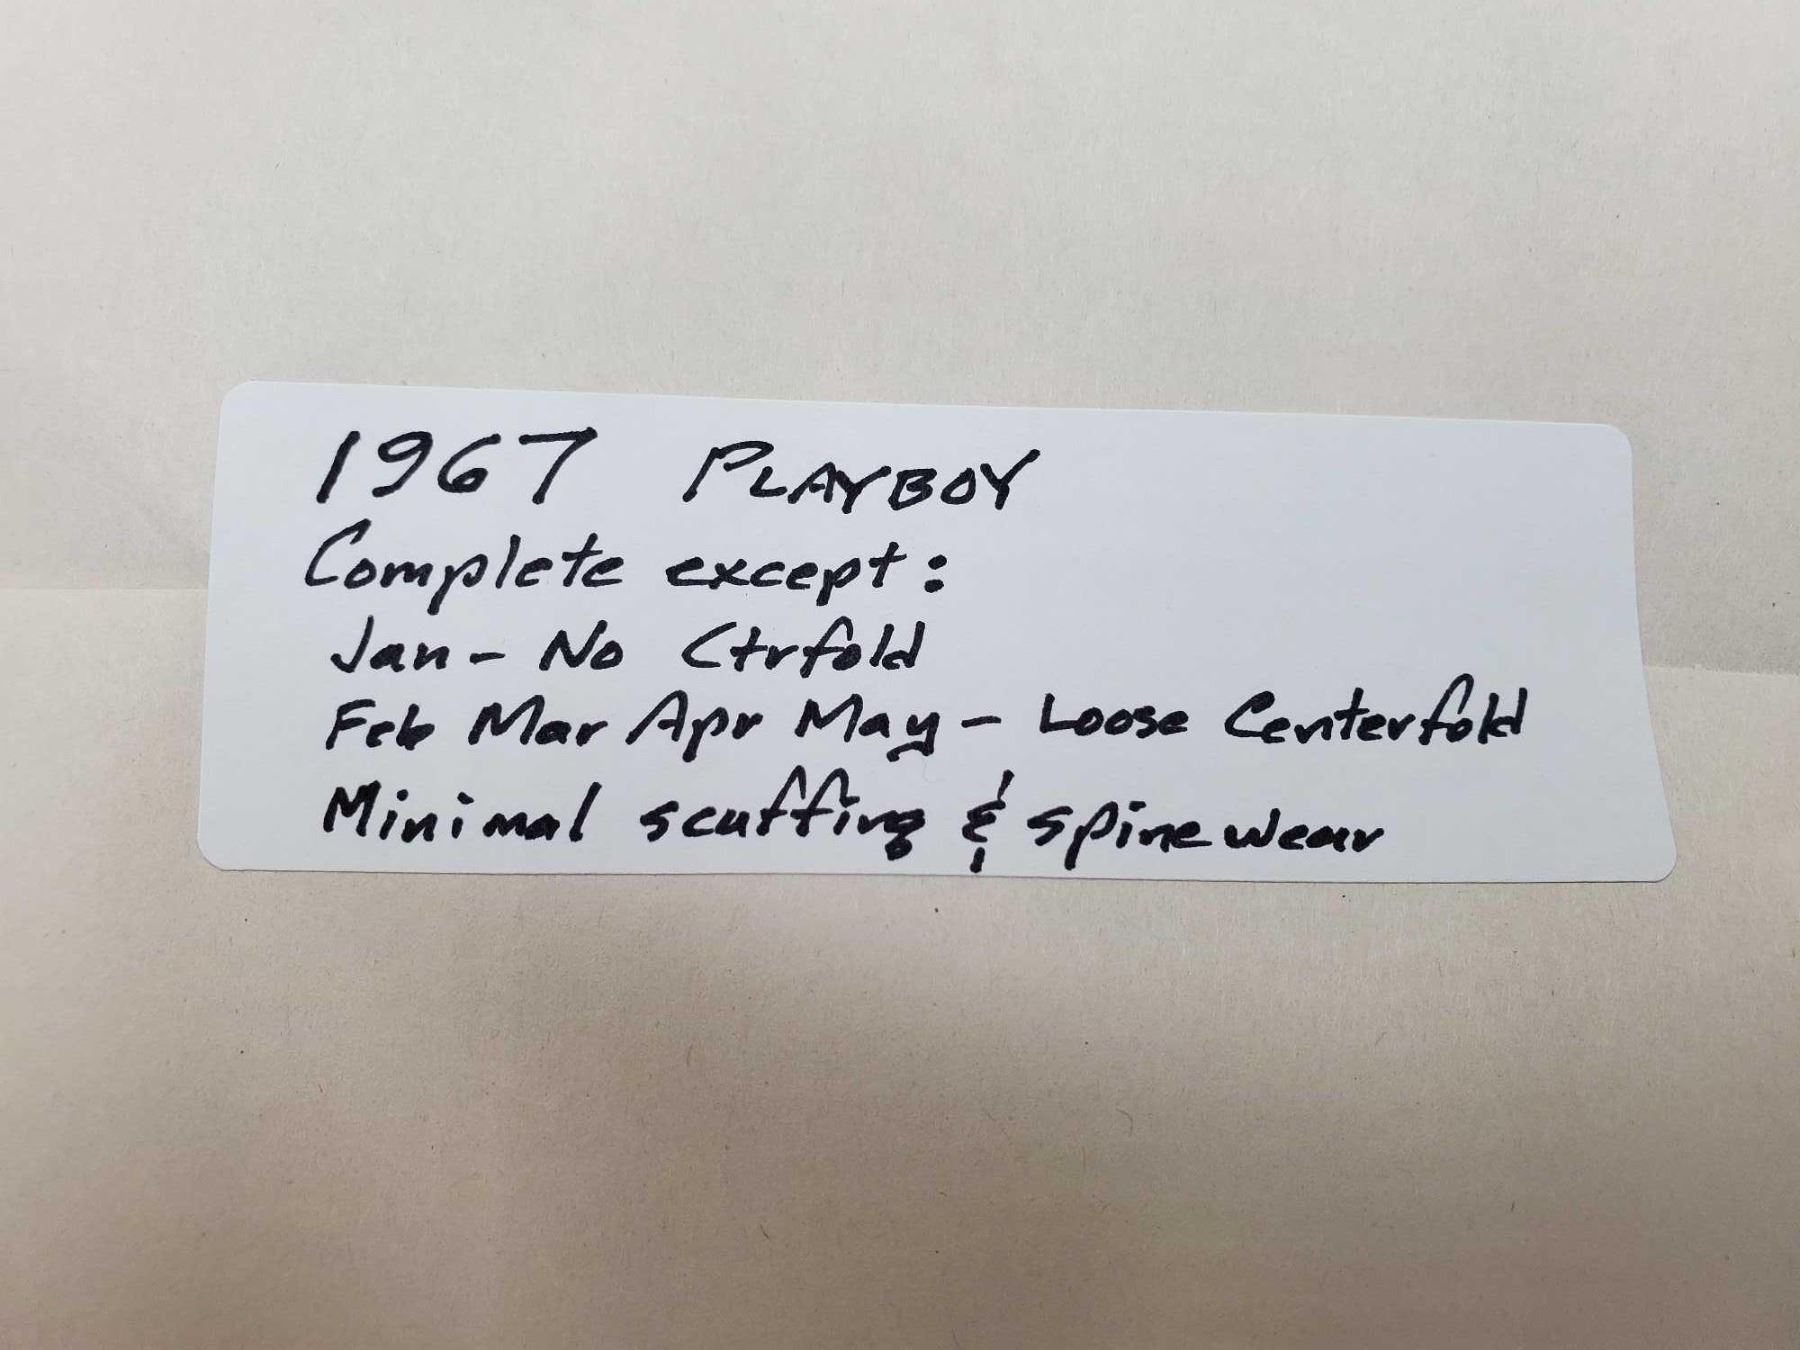 1967 PLAYBOY
Complete except:
Jan - No Ctrfold
Feb Mar Apr May - Loose Centerfold
Minimal scuffing & spine wear